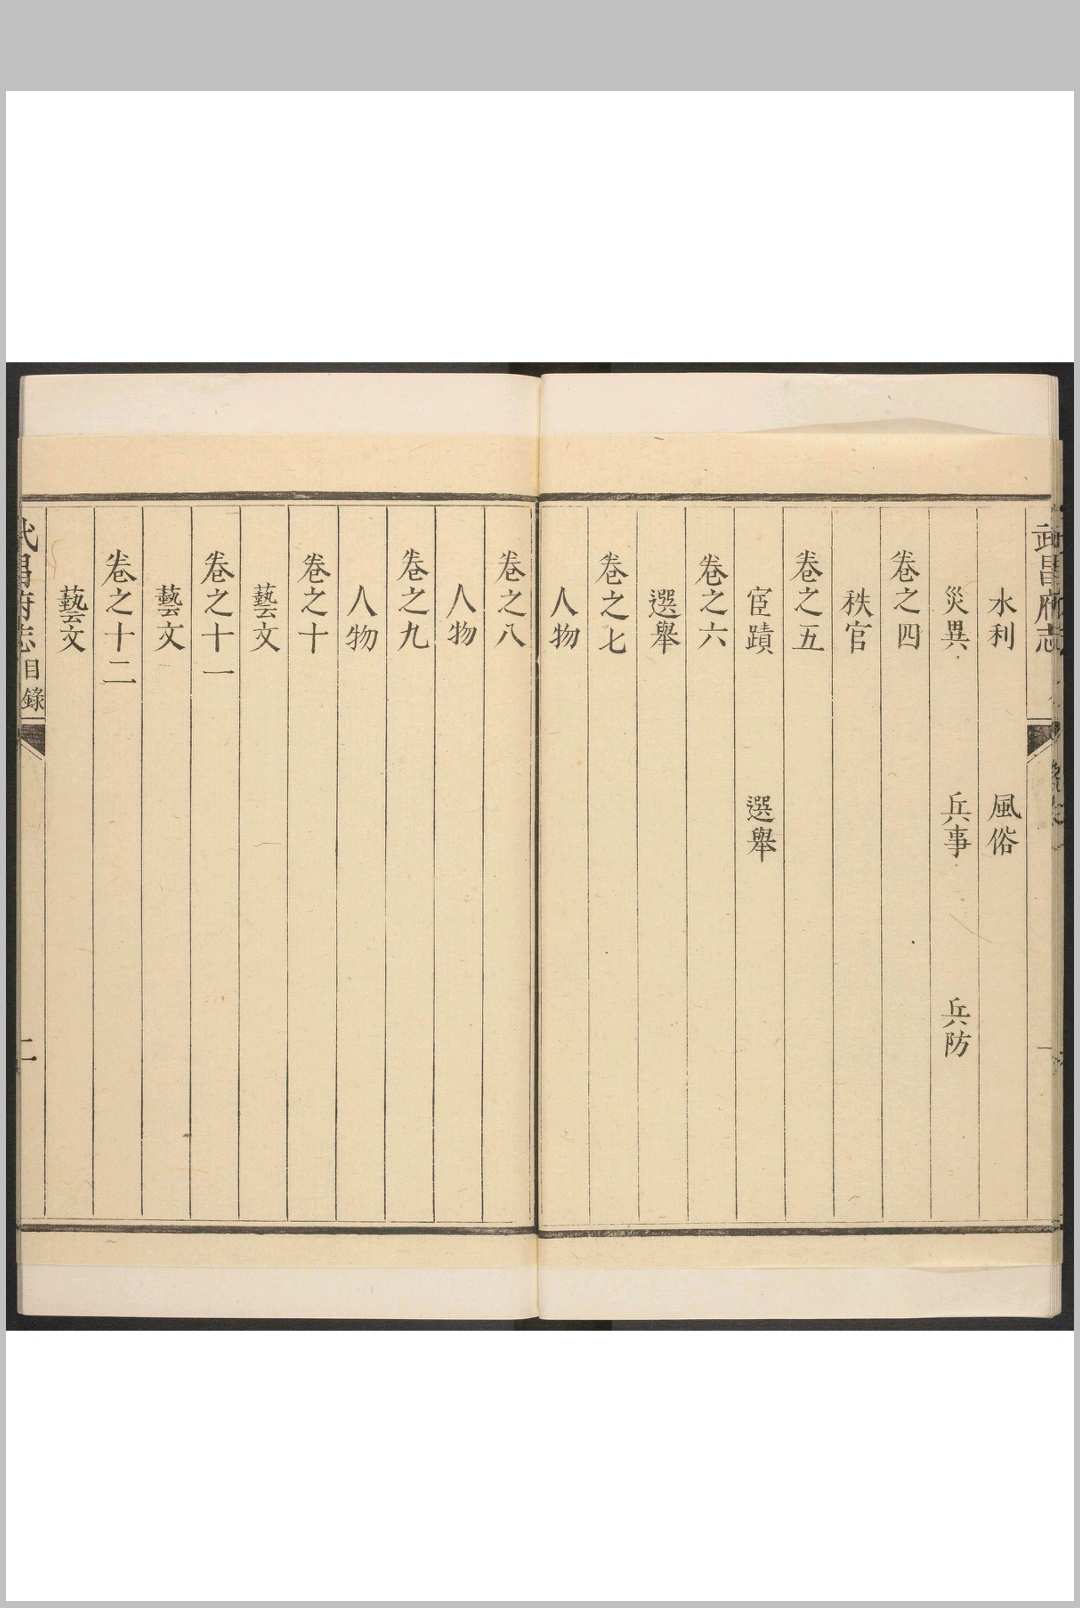 武昌府志
水利 風俗
災異 兵事 兵防
卷之四
秩官
卷之五
宦蹟 選舉
卷之六
選舉
卷之七
人物
卷之八
人物
卷之九
人物
卷之十
藝文
卷之十一
藝文
卷之十二
藝文
武昌府志 目錄 二